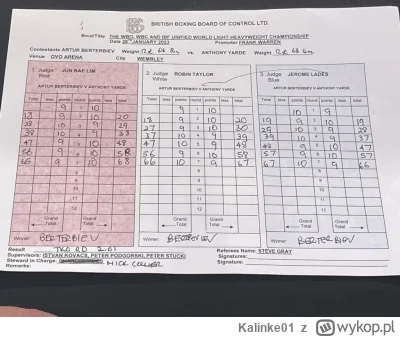 BRITISH BOXING BOARD OF CONTROL LTD.
Bout/Title THE WBO, WBC AND IBF UNIFIED WORLD LIGHT-HEAVYWEIGHT CHAMPIONSHIP
Date 28TH JANUARY 2023 Promoter FRANK WARREN
Contestants ARTUR BERTERBIEV Weight vs ANTHONY YARDE Weight
Venue OVO ARENA CITY WEMBLEY
1 Judge JUN BAE LIM Red
2 Judge ROBIN TAYLOR White
3 Judge JEROME LADES Blue
ARTUR BERTERBIEV V ANTHONY YARDE ARTUR BERTERBIEV V ANTHONY YARDE ARTUR BERTERBIEV V ANTHONY YARDE
Total less points round points less total Total less points round points less total Total less points round points less total
9 1 10 9 1 10 10 1 9
18 9 2 10 20 18 9 2 10 20 19 9 2 10 19
28 10 3 9 29 27 9 3 10 30 29 10 3 9 28
38 10 4 9 37 10 4 9 39 39 10 4 9 37
47 9 5 10 48 47 9 5 10 48 9 5 10 47
9 6 10 58 56 9 6 10 58 57 9 6 10 57
66 10 7 9 66 10 7 9 67 67 10 7 9 66
8 8 8
9 9 9
10 10 10
11 11 11
12 12 12
Grand Total Grand Total Grand Total Grand Total Grand Total Grand Total
Winner: BERTERBIEV Winner: Winner: BERTERBIEV
Result TKO RD 2.01 Referees Name: STEVE GRAY
Supervisors: ISTVAN KOVACS, PETER PODGORSKI, PETER STUCKI Signatures:
Steward in Charge MICK COLLIER Signature:
Remarks:
Kalinke01 z wykop.pl